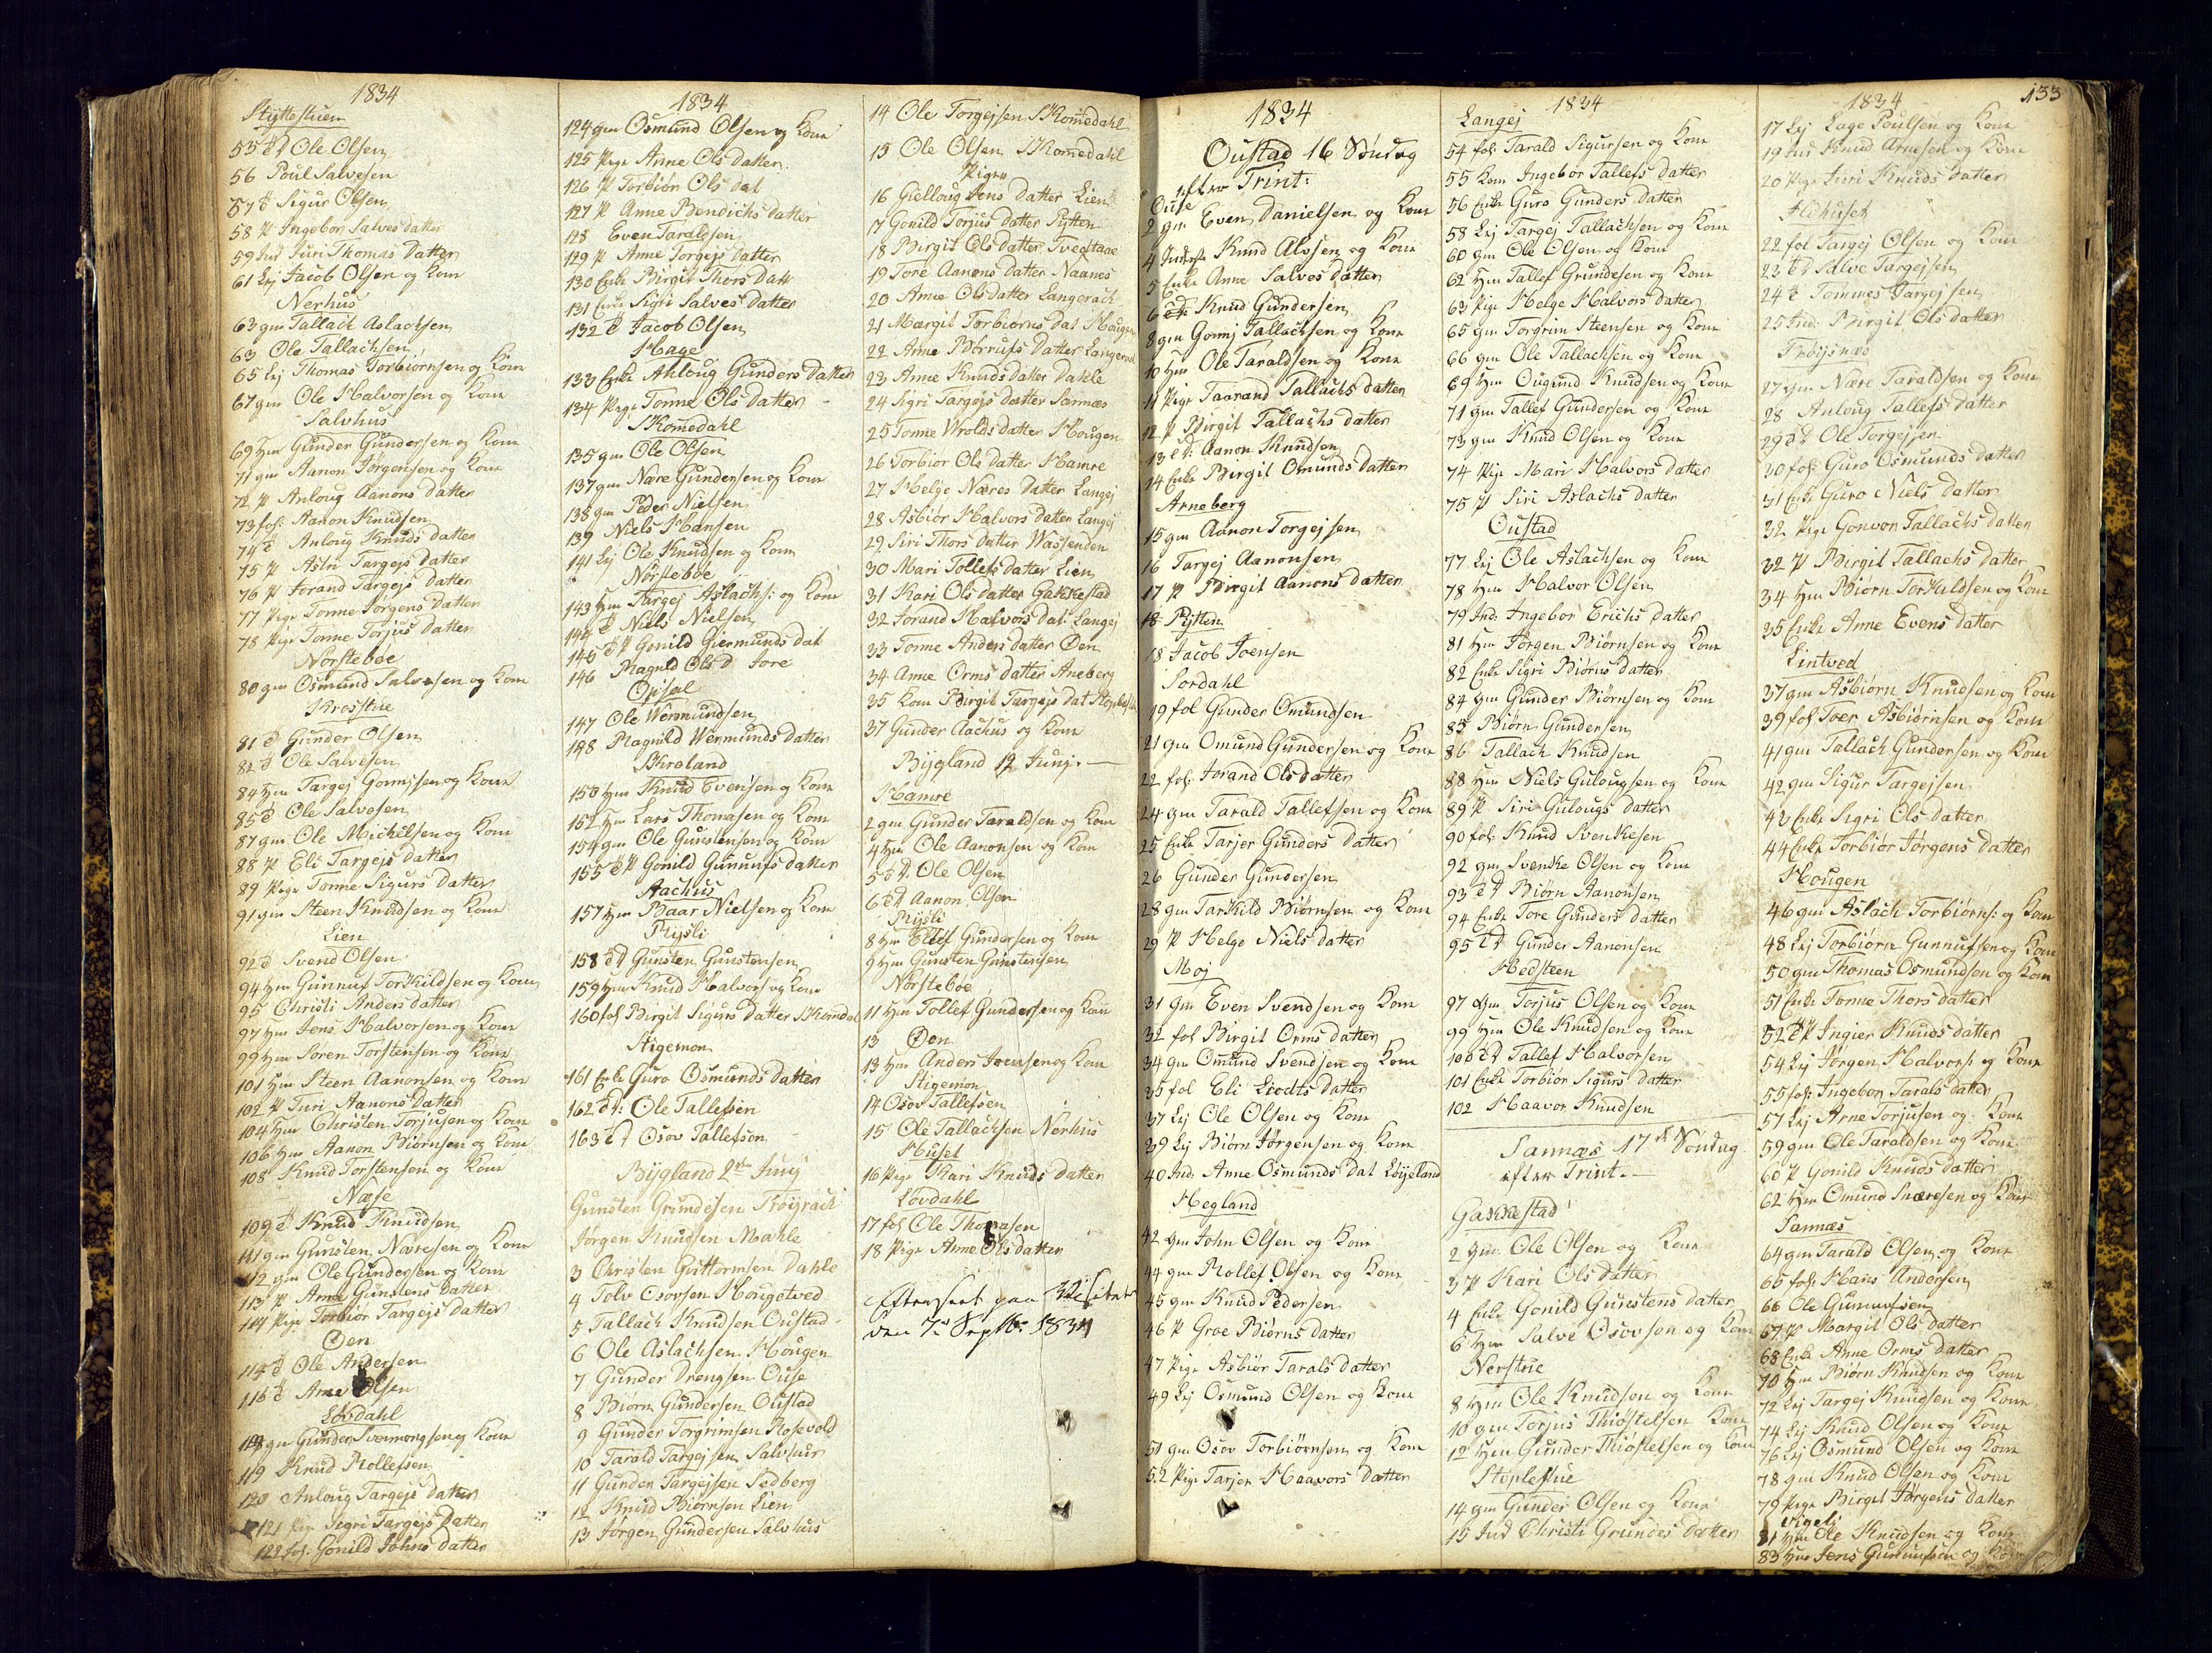 1834
Støttestuen
55 Ole Olsen
56 Poul Salvesen
57 Sigur Olsen
58 P Ingebor Salves datter
59 Ind Juri Thomas Datter
61 Lej Jacob Olsen og Kone
Nerhus
63 gm Tallach Aslachsen
63 Ole Tallachsen
65 Lej Thomas Torbiornsen og Kone
67 gm Ole Halvorsen og Kone
Salvhus
69 Hm Gunder Gundersen og Kone
71 gm Aanon Jørgensen og Kone
72 P Anloug Aanons datter
73 fol: Aanon Knudsen
74 Anloug Knuds datter
75 P Astri Targejs datter
76 P Jorand Targejs datter
77 Pige Tonne Jørgens Datter
78 Pige Tonne Torjus Datter
Norstebøe
80 gm Osmund Salvesen og Kone
Krosstue
81 Gunder Olsen
82 Ole Salvesen
84 Hm Targej Gonnisen og Kone
85 Ole Salvesen
87 gm Ole Michelsen og Kone
88 P Eli Targejs datter
89 Pige Tonne Sigurs Datter
91 gm Steen Knudsen og Kone
Lien
92 Svend Olsen
94 Hm Gunnuf Torkildsen og Kone
95 Christi Anders datter
97 Hm Jens Halvorsen og Kone
99 Hm Soren Torstensen og Kone
101 Hm Steen Aanonsen og Kone
102 P Turi Aanons Datter
104 Hm Christen Torjusen og Kone
106 Hm Aanon Biørnsen og Kone
108 Knud Torstensen og Kone
Næse
109 Knud Knudsen
111 gm Gunsten Næresen og Kone
112 gm Ole Gundersen og Kone
113 P Anne Gunstens Datter
114 Pige Torbiør Targejs datter
Øen
115 Ole Andersen
116 Arne Olsen
Lovdahl
118 gm Gunder Svennongsen og Kone
119 Knud Rollefsen
120 Anloug Targejs datter
121 Pige Sigri Targejs Datter
122 fol: Gonild Johns datter
1834
124 gm Osmund Olsen og Kone
125 Pige Anne Ols datter
126 P Torbiør Ols dat
127 P Anne Bendichs datter
128 Even Taraldsen
129 P Anne Torgejs datter
130 Enke Birgit Thors Datt
131 Enke Sigri Salves Datter
132 Jacob Olsen
Hage
133 Enke Anloug Gunders Datter
134 Pige Tonne Ols datter
Skomedahl
135 gm Ole Olsen
137 gm Nære Gundersen og Kone
138 gm Peder Nielsen
139 Niels Hansen
141 Lej Ole Knudsen og Kone
Norstebøe
143 Hm Targej Aslachs: og Kone
144 Niels Nielsen
145 P Gonild Giermunds dat
146 Ragnild Ols d Jore
Opisal
147 Ole Wermundsen
148 Ragnild Wermunds datter
Skraland
150 Hm Knud Evensen og Kone
152 Hm Lars Thomasen og Kone
154 gm Ole Gunstensen og Kone
155 P Gonild Gunnufs datter
Aachus
157 Hm Baar Nielsen og Kone
Rysli
158 Gunsten Gunstensen
159 Hm Knud Halvors og Kone
160 fol Birgit Sigurs Datter Skomdal
Stigemon
161 Enke Guro Osmunds datter
162 Ole Tallefsen
163 Osov Tallefson
Bygland 2den Junj
Gunsten Grundesen Frøyrach
Jørgen Knudsen Mahle
3 Christen Guttormsen Dahle
4 Tolv Osorsen Hougetved
5 Tallach Knudsen Oustad
6 Ole Aslachsen Hougen
7 Gunder Drengsen Ouse
8 Biørn Gundersen Oustad
9 Gunder Torgrimsen Rosevold
10 Tarald Targejsen Salvhus
11 Gunder Targejsen Sedberg
12 Knud Biørnsen Lien
13 Jørgen Gundersen Salvhus
14 Ole Torgejsen Skomedahl
15 Ole Olsen Skomedahl
Piger
16 Gielloug Jens Datter Lien
17 Gonild Torjus Datter Pytten
18 Birgit Ols Datter Tvedtaae
19 Tore Aanons Datter Naanes
20 Anne Ols datter Langerach
21 Margit Torbiorns Dat Hougen
22 Anne Børrufs Datter Langerod
23 Anne Knuds Datter Dahle
24 Sigri Targejs Datter Sannæs
25 Tonne Wrolds datter Hougen
26 Torbiør Ols Datter Hamre
27 Helge Næres Datter Langej
28 Asbiør Halvors Datter Langej
29 Siri Thors datter Wassenden
30 Mari Tollefs datter Lien
31 Kari Ols Datter Gakkestad
32 Jorand Halvors dat Langej
33 Tonne Anders datter Øen
34 Anne Orms datter Aneberg
35 Kone Birgit Targejs Dat
37 Gunder Aachus og Kone
Bygland 12 Junj
Hamre
2 gm Gunder Taraldsen og Kone
4 Hm Ole Aanonsen og Kone
5 Ole Olsen
6 Aanon Olsen
Rysli
8 Hm Ellef Gundersen og Kone
9 Hm Gunsten Gunstensen
Norsteboe
11 Hm Tollef Gundersen og Kone
13 Øen
13 Hm Anders Joensen og Kone
Stigemon
14 Osov Tallefsen
15 Ole Tallachsen Nerhus
Huset
16 Pige Kari Knuds datter
Lovdahl
17 fol Ole Thomasen
18 Pige Anne Ols datter
Efterseet paa Visitats
den 7de Septbr 1834
1834
Oustad 16 Søndag
efter Trint:
Ouse
2 gm Even Danielsen og Kone
4 Inderste Knud Alvsen og Kone
5 Enke Anne Salves datter
6 Knud Gundersen
8 gm Gonnj Tallachsen og Kone
10 Hm Ole Taraldsen og Kone
11 Pige Taarand Tallachs datter
12 P Birgit Tallachs datter
13 Aanon Knudsen
14 Enke Birgit Omunds Datter
Arneberg
15 gm Aanon Torgejsen
16 Targej Aanonsen
17 P Birgit Aanons datter
18 Pytten
18 Jacob Joensen
Sordahl
19 fol Gunder Omundsen
21 gm Omund Gundersen og Kone
22 fol: Jorand Ols datter
24 gm Tarald Tallefsen og Kone
25 Enke Tarjer Gunders datter
26 Gunder Gundersen
28 gm Tarkild Biørnsen og Kone
29 P Helge Niels datter
Moj
31 gm Even Svendsen og Kone
32 fol Birgit Orms datter
34 gm Omund Svendsen og Kone
35 fol Eli Liedts datter
37 Lej Ole Olsen og Kone
39 Lej Biørn Jørgensen og Kone
40 Ind: Anne Osmunds Dat Løyeland
Hegland
42 gm John Olsen og Kone
44 gm Rollef Olsen og Kone
45 gm Knud Pedersen
46 P Groe Biørns datter
47 Pige Asbiør Tarals datter
49 Lej Osmund Olsen og Kone
51 gm Osov Torbiørnsen og Kone
52 Pige Tarjer Haavors datter
1834
Langej
54 fol: Tarald Sigursen og Kone
55 Kone Ingebor Tallefs datter
56 Enke Guro Gunders datter
58 Lej Targej Tallachsen og Kone
60 gm Ole Olsen og Kone
62 Hm Tallef Grundesen og Kone
63 Pige Helge Halvors datter
65 gm Torgrim Steensen og Kone
66 gm Ole Tallachsen og Kone
69 Hm Ougund Knudsen og Kone
71 gm Tallef Gundersen og Kone
73 gm Knud Olsen og Kone
74 Pige Mari Halvors datter
75 P Siri Aslachs datter
Oustad
77 Lej Ole Aslachsen og Kone
78 Hm Halvor Olsen
79 Ind: Ingebor Erichs Datter
81 Hm Jørgen Biørnsen og Kone
82 Enke Sigri Biørns datter
84 gm Gunder Biørnsen og Kone
85 Biørn Gundersen
86 Tallach Knudsen
88 Hm Niels Gulougsen og Kone
89 P Siri Gulougs datter
90 fol: Knud Svenkesen
92 gm Svenke Olsen og Kone
93 Biørn Aanonsen
94 Enke Tore Gunders datter
95 Gunder Aanonsen
Hedsteen
97 gm Torjus Olsen og Kone
99 Hm Ole Knudsen og Kone
100 Tallef Halvorsen
101 Enke Torbiør Sigurs datter
102 Haavor Knudsen
Sannæs 17de Søndag
efter Trint.
Gakkestad
2 gm: Ole Olsen og Kone
3 P Kari Ols datter
4 Enke Gonild Gunstens datter
6 Hm Salve Osovson og Kone
Nerstue
8 Hm Ole Knudson og Kone
10 gm Torjus Thiøstelsen Kone
12 Hm Gunder Thiøstelsen og Kone
Stoplestue
14 gm Gunder Olsen og Kone
15 Ind Christi Grundes datter
1834
133
17 Lej Lage Poulsen og Kone
19 Ind Knud Arnesen og Kone
20 Pige Juri Knuds datter
Ildhuset
22 fol Targej Olsen og Kone
23 Salve Targejsen
24 Tommes Targejsen
25 Ind: Birgit Ols datter
Frøysnæs
27 gm Nære Taraldsen og Kone
28 Anloug Tallefs datter
29 Ole Torgejsen
30 fol: Guro Osmunds datter
31 Enke Guro Niels datter
32 Pige Gonvor Tallachs datter
32 P Birgit Tallachs datter
34 Hm Biørn Torkildsen og Kone
35 Enke Anne Evens datter
Lintved
37 gm Asbiørn Knudsen og Kone
39 fol Toer Asbiørnsen og Kone
41 gm Tallach Gundersen og Kone
42 gm Sigur Targejsen
43 Enke Sigri Ols datter
44 Enke Torbiør Jørgens datter
Hougen
46 gm Aslach Torbiørns: og Kone
48 Lej Torbiørn Gunnufsen og Kone
50 gm Thomas Osmundsen og Kone
51 Enke Tonne Thors datter
52 P Ingier Knuds datter
54 Lej Jørgen Halvors: og Kone
55 fol: Ingebor Tarals datter
57 Lej Arne Torjusen og Kone
59 gm Ole Taraldsen og Kone
60 P Gonild Knuds datter
62 Hm Omund Sværesen og Kone
Sannæs
64 gm Tarald Olsen og Kone
65 fol: Hans Andersen
66 Ole Gunnufsen
67 P Margit Ols datter
68 Enke Anne Orms datter
70 Hm Biørn Knudsen og Kone
72 Lej Targej Knudsen og Kone
74 Lej Knud Olsen og Kone
76 Lej Osmund Olsen og Kone
78 gm Knud Olsen og Kone
79 Pige Birgit Jørgens datter
Vigeli
81 Hm Ole Knudsen og Kone
83 Hm Jens Gunnufsen og Kone